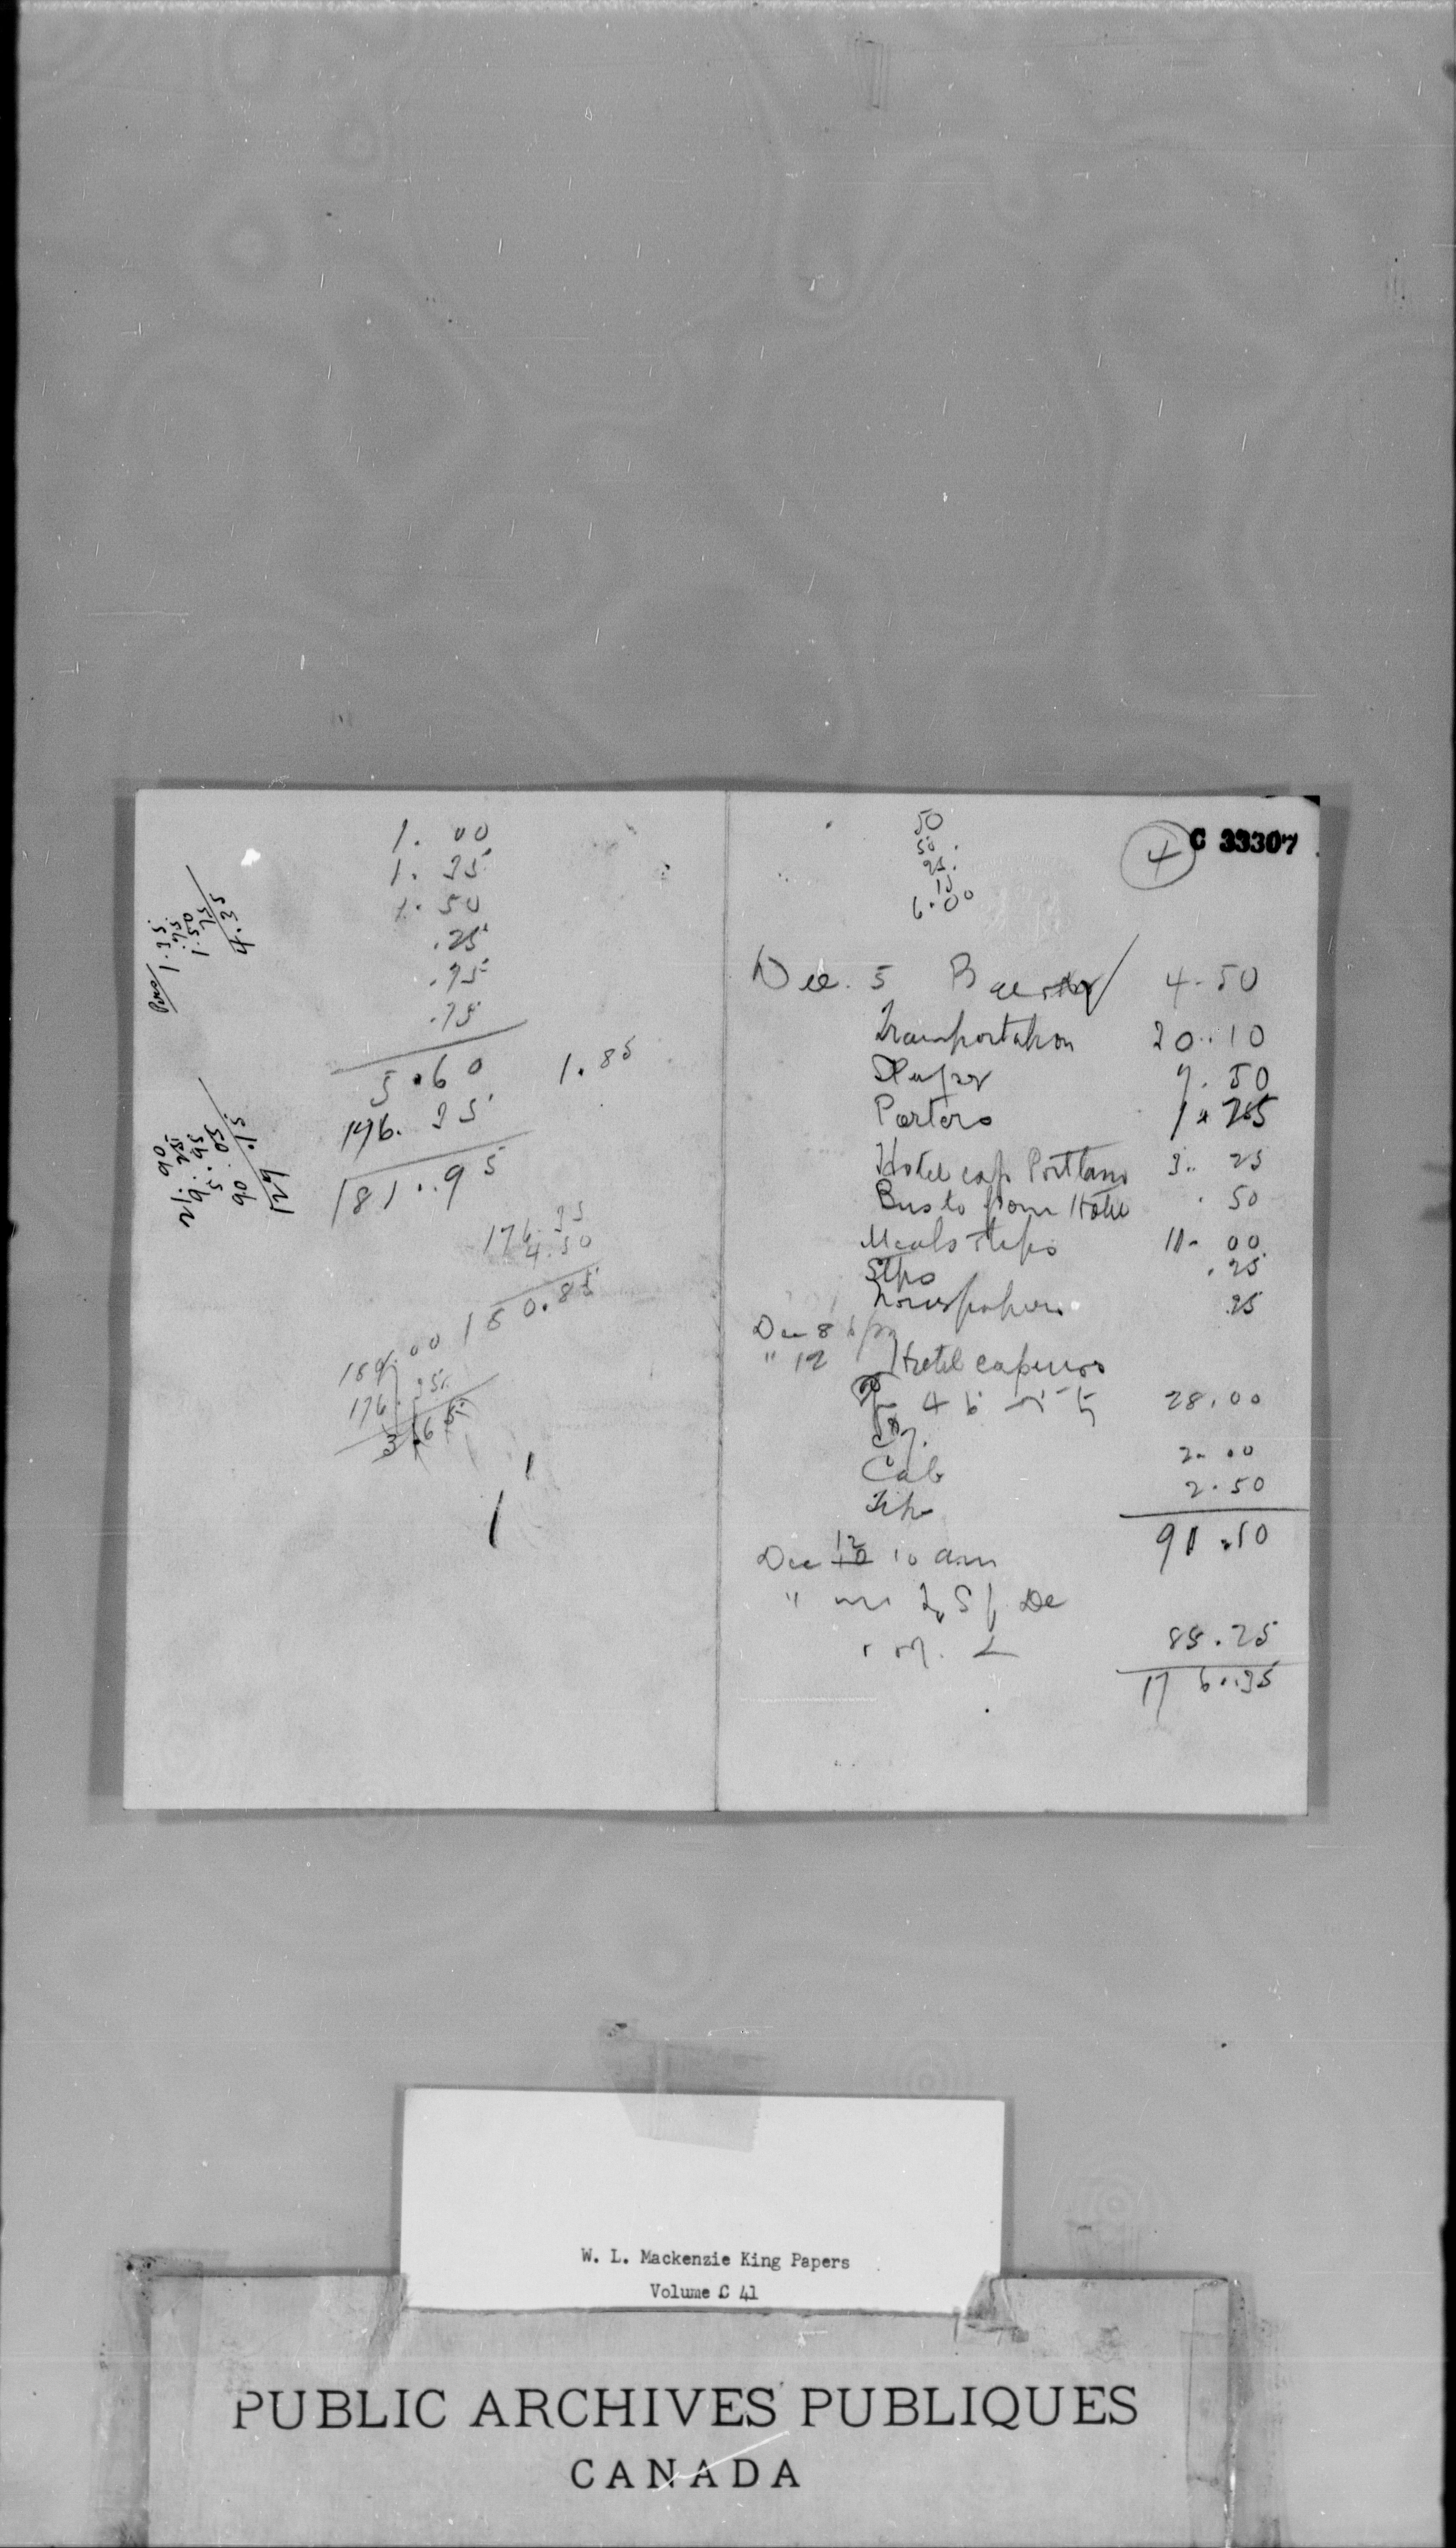 1.00
1.35
1.50
.25
.75
.75
5.60
1.85
176.35
181.95
176.35
4.50
180.85
180.00
176.35
3.65
1.35
.75
1.50
.75
4.35
21.90
9.25
5.95
90.05
127.15
50
50.
25.
15
6.00
4
C 33307
Dec. 5 4.50
Transportation 20.10
7.50
Porters 1.25
Hotel exp Portland 3.25
Bus to from Hotel .50
Meals & tips 11.00
.25
Newspapers .25
Dec 8
" 12 Hotel expenses
28.00
Cab 2.00
Tips 2.50
91.10
Dec 12 10 am
85.25
176.35
W. L. Mackenzie King Papers
Volume C 41
PUBLIC ARCHIVES PUBLIQUES
CANADA